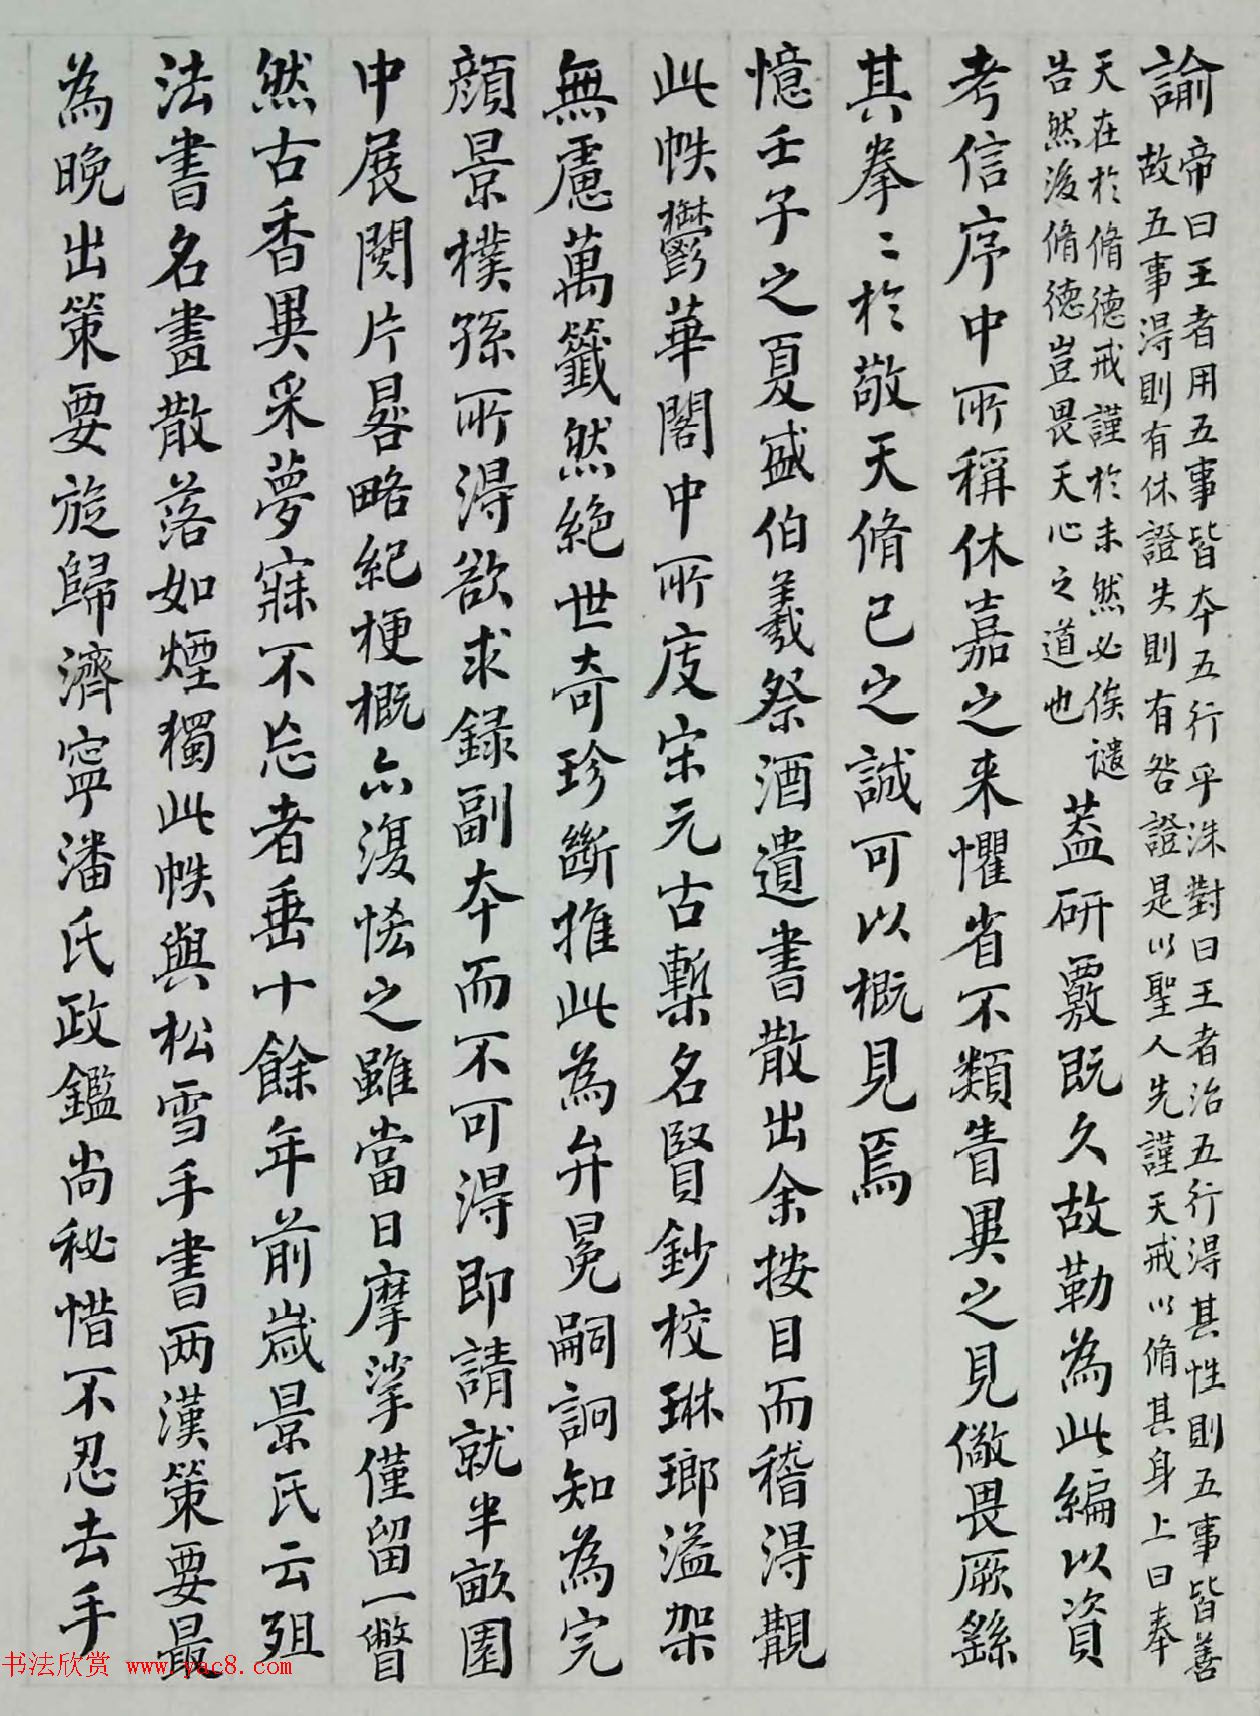 諭帝曰王者用五事皆本五行乎洙對曰王者治五行得其性則五事皆善
故五事得則有休證失則有咎證是以聖人先謹天戒以脩其身上曰奉
天在於脩德戒謹於未然必俟譴
告然後脩德豈畏天心之道也
蓋研覈既久故勒為此編以資
考信序中所稱休嘉之来懼省不類眚異之見儆畏厥繇
其拳〻於敬天脩已之誠可以概見焉
憶壬子之夏盛伯羲祭酒遺書散出余按目而稽得覩
此帙欝華閣中所庋宋元古槧名賢鈔校琳瑯溢架
無慮萬籤然絶世奇珍斷推此為弁冕嗣詗知為完
顔景樸孫所得欲求録副本而不可得即請就半畝園
中展閱片晷略紀梗概亦復恡之雖當日摩挲僅留一瞥
然古香異采夢寐不忘者垂十餘年前歲景氏云殂
法書名畫散落如煙獨此帙與松雪手書两漢策要最
為晚出策要旋歸濟寧潘氏政鑑尚秘惜不忍去手
书法欣赏 www.yac8.com